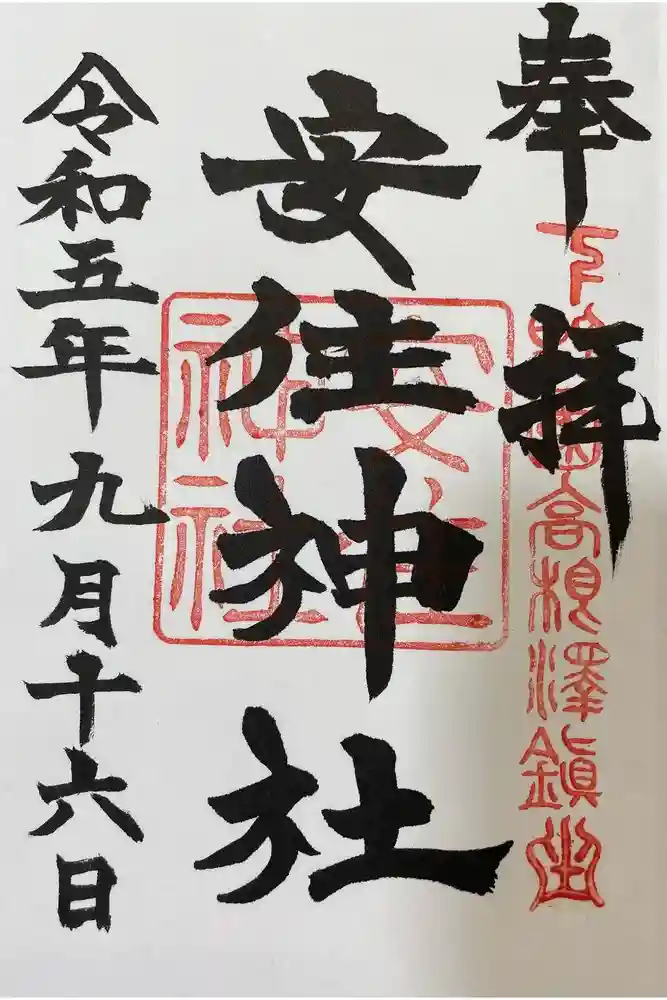 奉拝
下野國高根澤鎭座
安住神社
安住神社
令和五年九月十六日